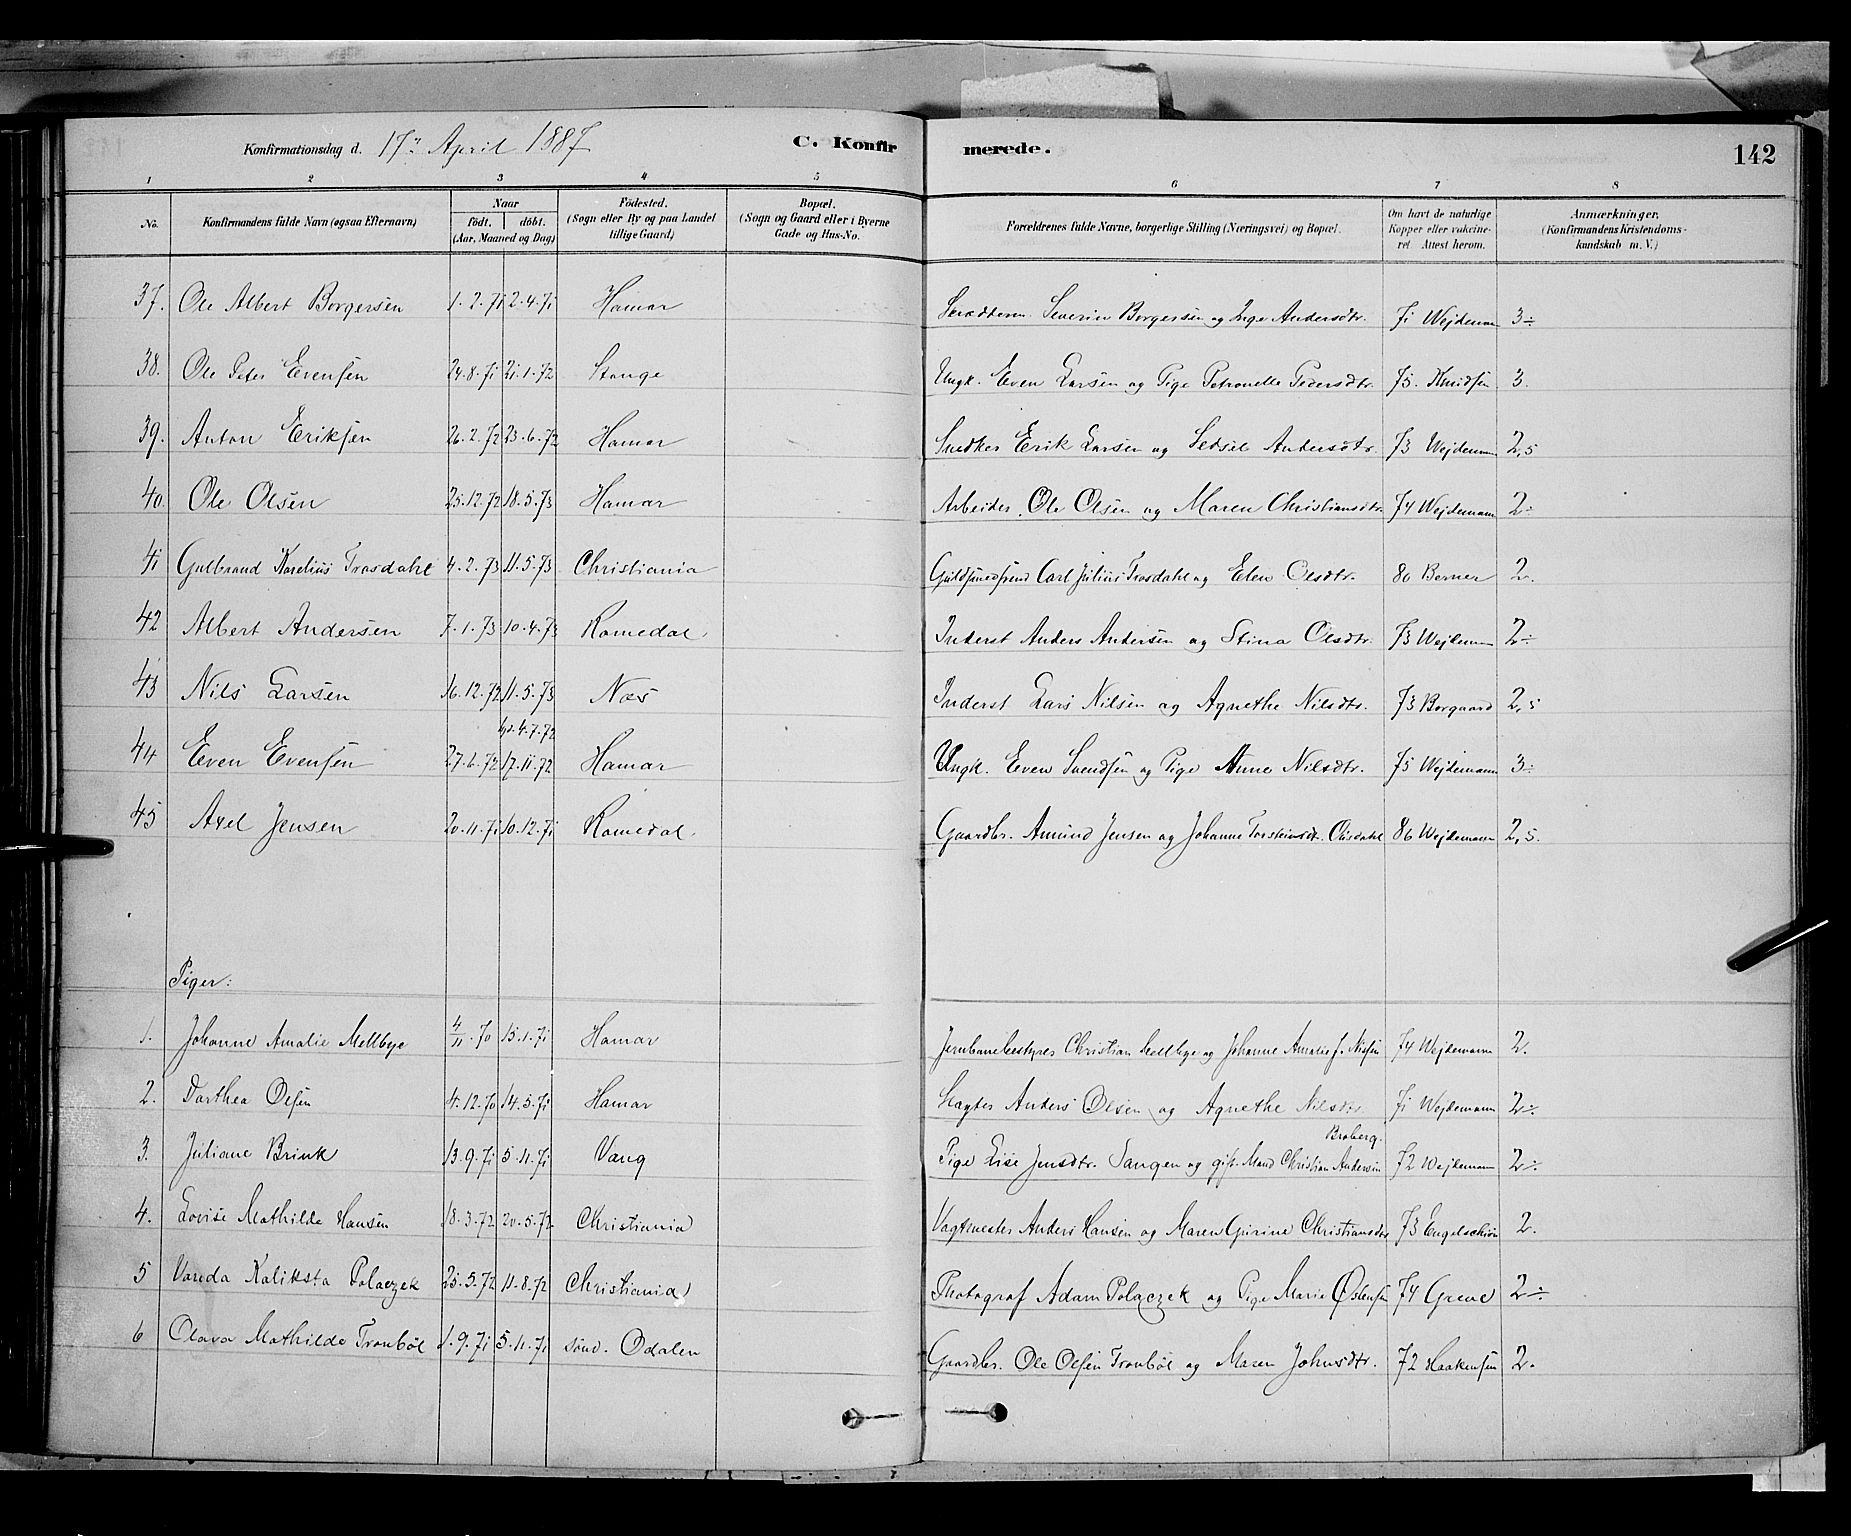 Konfirmationsdag d. 17de April 1887 C. Konfirmerede. 142
1 2 3 4 5 6 7 8
No. Konfirmandens fulde Navn (ogsaa Efternavn) Naar födt. döbt. (Aar, Maaned og Dag) Födested. (Sogn eller By og paa Landet tillige Gaard) Bopæl. (Sogn og Gaard eller i Byerne Gade og Hus-No. Forældrenes fulde Navne, borgerlige Stilling (Næringsvei) og Bopæl. Om havt de naturlige Kopper eller vakcineret. Attest herom. Anmærkninger, (Konfirmandens Kristendomskundskab m. V.)
37. Ole Albert Borgersen 1.2.71 2.4.71 Hamar Skrædderm Severin Borgersen og Inge Andersdtr. 71 Wejdemann 3÷
38. Ole Peter Evensen 24.8.71 21.1.72 Stange Ungk. Even Larsen og Pige Petronelle Pedersdtr. 75. Knudsen 3.
39. Anton Eriksen 26.2.72 23.6.72 Hamar Snedker Erik Larsen og Sedsel Andersdtr. 73 Wejdemann 2,5
40. Ole Olsen 25.12.72 18.5.73 Hamar Arbeider Ole Olsen og Maren Christiansdtr. 74 Wejdemann 2÷
41 Gulbrand Karelius Trosdahl 4.2.73 11.5.73 Christiania Guldsmedsvend Carl Julius Trosdahl og Elen Olsdtr. 80 Berner 2.
42 Albert Andersen 7.1.73 10.4.73 Romedal Inderst Anders Andersen og Stina Olsdtr. 73 Wejdemann 2÷
43 Nils Larsen 16.12.72 11.5.73 Næs Inderst Lars Nilsen og Agnethe Nilsdtr. 73 Borgaard 2,5
4.7.72
44 Even Evensen 27.6.72 17.11.72 Hamar Ungk. Even Svendsen og Pige Anne Nilsdtr. 75 Wejdemann 3÷
45 Axel Jensen 20.11.71 10.12.71 Romedal. Gaardbr. Amund Jensen og Johanne Torsteinsdt. Olisdahl 86 Wejdemann 2,5.
Piger:
1. Johanne Amalie Mellbye 4/11.70 15.1.71 Hamar Jernbanebestyrer Christian Mellbye og Johanne Amalie f. Nissen 74 Wejdemann 2.
2. Dorthea Olsen 4.12.70 14.5.71 Hamar Slagter Anders Olsen og Agnethe Nilsdtr. 71 Wejdemann 2÷
Broberg.
3. Juliane Brink 13.9.71 5.11.71 Vang Pige Lise Jensdtr. Tangen og gift Mand Christian Andersen 72 Wejdemann 2÷
4. Lovise Mathilde Hansen 18.3.72 20.5.72 Christiania Vagtmester Anders Hansen og Maren Gurine Christiansdtr 73 Engelschiøn 2.
5 Vanda Kaliksta Polaczek 25.5.72 11.8.72 Christiania Photograf Adam Polaczek og Pige Marie Østensen 74 Greve 2÷
6 Olava Mathilde Tronbøl 1.9.71 5.11.71 sønd. Odalen Gaardbr. Ole Olsen Tronbøl og Maren Johnsdtr. 72 Haakensen 2.